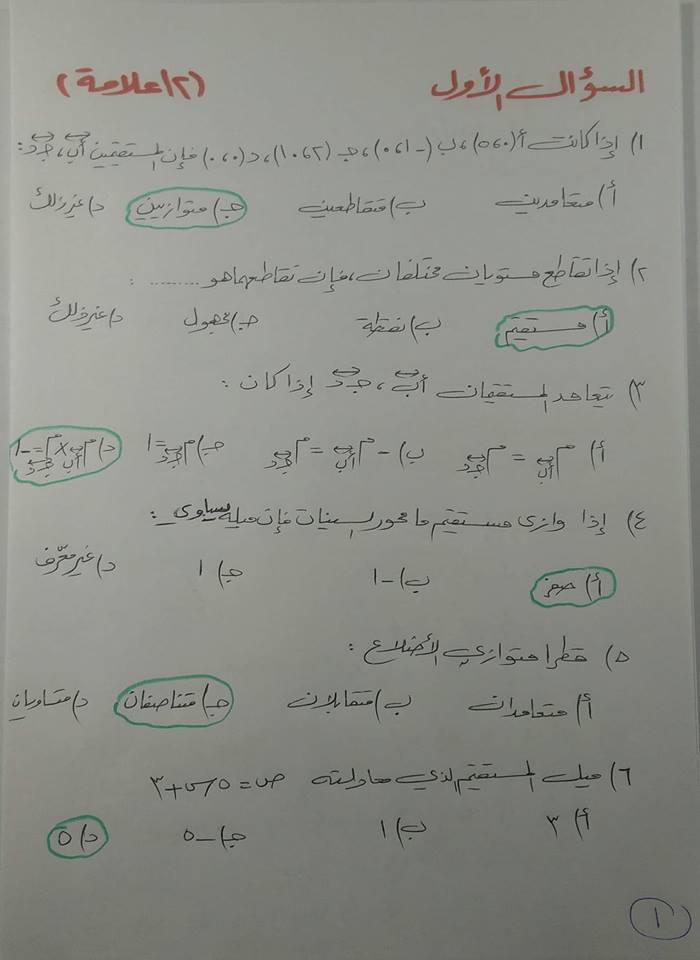 السؤال الأول (١٢ علامة)
١) إذا كانت أ(٥،٠)، ب(-١،٠)، جـ(٢،١٠)، د(٠،٠) فإن المستقيمين أب، جـد:
أ) متعامدين ب) متقاطعين جـ) متوازيين د) غير ذلك
٢) إذا تقاطع مستويان مختلفان، فإن تقاطعهما هو ......... :
أ) مستقيم ب) نقطة جـ) مجهول د) غير ذلك
٣) يتعامد المستقيمان أب، جـد إذا كان :
أ) م أب = م جـد ب) - م أب = م جـد جـ) م أب جـد = ١ د) م أب × م جـد = -١
٤) إذا وازى مستقيم ما محور السينات فإن ميله يساوي :
أ) صفر ب) -١ جـ) ١ د) غير معرّف
٥) قطرا متوازي الأضلاع :
أ) متعامدان ب) متقابلان جـ) متناصفان د) متساويان
٦) ميل المستقيم الذي معادلته ص = ٥س + ٣
أ) ٣ ب) ١ جـ) -٥ د) ٥
١